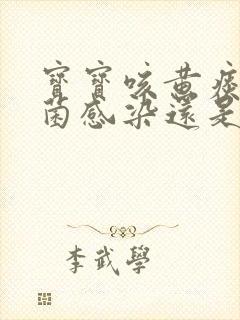 寶寶咳黃痰
菌感染還是
李武學